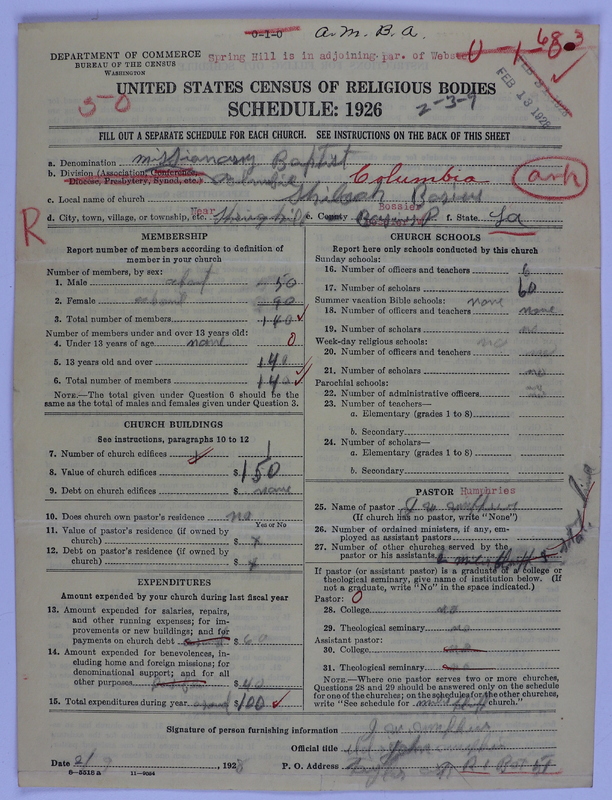 0-1-0
A.M.B.A.
DEPARTMENT OF COMMERCE
BUREAU OF THE CENSUS
WASHINGTON
Spring Hill is in adjoining par. of Webster
0-1-68.3
FEB 13 1928
UNITED STATES CENSUS OF RELIGIOUS BODIES
5-0
SCHEDULE: 1926
2-3-7
FILL OUT A SEPARATE SCHEDULE FOR EACH CHURCH. SEE INSTRUCTIONS ON THE BACK OF THIS SHEET
a. Denomination Missionary Baptist
b. Division (Association, Conference, Diocese, Presbytery, Synod, etc.) Columbia
Ark
c. Local name of church Shiloah
d. City, town, village, or township, etc. Near e. County Bossier f. State La
R
MEMBERSHIP
Report number of members according to definition of
member in your church
Number of members, by sex:
1. Male about 50
2. Female about 90
3. Total number of members 140
Number of members under and over 13 years old:
4. Under 13 years of age none 0
5. 13 years old and over 140
6. Total number of members 140
NOTE.—The total given under Question 6 should be the
same as the total of males and females given under Question 3.
CHURCH BUILDINGS
See instructions, paragraphs 10 to 12
7. Number of church edifices 1
8. Value of church edifices $150
9. Debt on church edifices $ none
10. Does church own pastor's residence no
Yes or No
11. Value of pastor's residence (if owned by
church) $ x
12. Debt on pastor's residence (if owned by
church) $ x
EXPENDITURES
Amount expended by your church during last fiscal year
13. Amount expended for salaries, repairs,
and other running expenses; for im-
provements or new buildings; and for
payments on church debt $ 60
14. Amount expended for benevolences, in-
cluding home and foreign missions; for
denominational support; and for all
other purposes $ 40
15. Total expenditures during year $100
CHURCH SCHOOLS
Report here only schools conducted by this church
Sunday schools:
16. Number of officers and teachers 6
17. Number of scholars 60
Summer vacation Bible schools: none
18. Number of officers and teachers none
19. Number of scholars no
Week-day religious schools: no
20. Number of officers and teachers
21. Number of scholars no
Parochial schools:
22. Number of administrative officers no
23. Number of teachers—
a. Elementary (grades 1 to 8)
b. Secondary
24. Number of scholars—
a. Elementary (grades 1 to 8)
b. Secondary
PASTOR Humphries
25. Name of pastor
(If church has no pastor, write "None")
26. Number of ordained ministers, if any, em-
ployed as assistant pastors
27. Number of other churches served by the
pastor or his assistants
If pastor (or assistant pastor) is a graduate of a college or
theological seminary, give name of institution below. (If
not a graduate, write "No" in the space indicated.)
Pastor: 0
28. College no
29. Theological seminary no
Assistant pastor:
30. College
31. Theological seminary
NOTE.—Where one pastor serves two or more churches,
Questions 28 and 29 should be answered only on the schedule
for one of the churches; on the schedules for the other churches,
write "See schedule for church."
Signature of person furnishing information
Official title
Date 2/9, 1928 P. O. Address
8-5518 a 11-9034